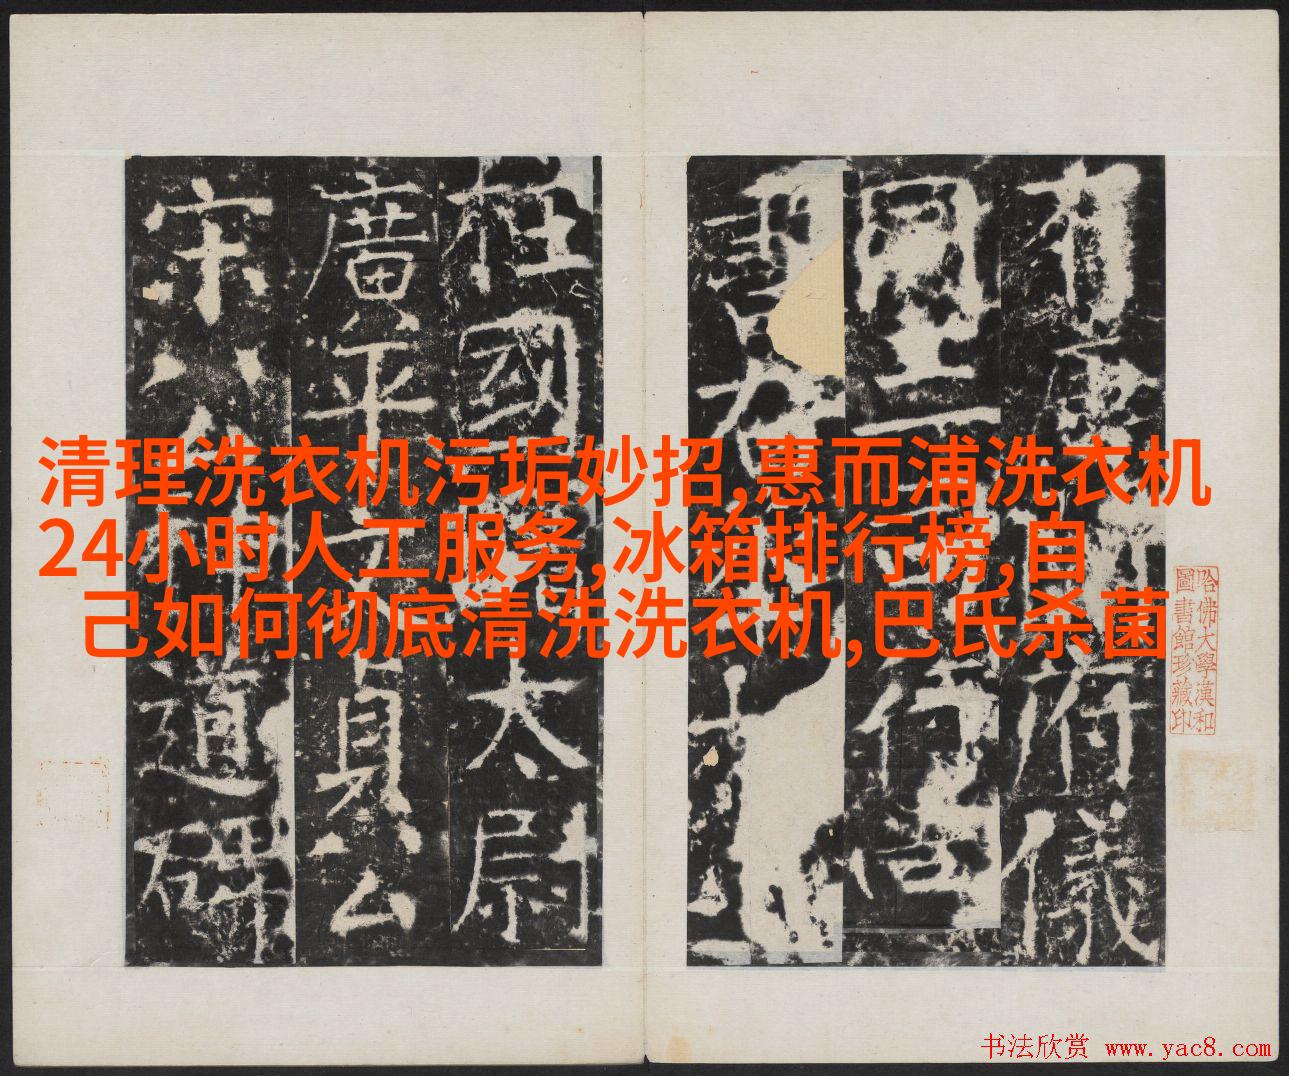 清理洗衣机污垢妙招,惠而浦洗衣机
24小时人工服务,冰箱排行榜,自
己如何彻底清洗洗衣机,巴氏杀菌
有唐府儀
同三行
右
柱國太尉
廣平文貞公
宋公神道碑
哈佛大學漢和
圖書館珍藏印
书法欣赏 www.yac8.com